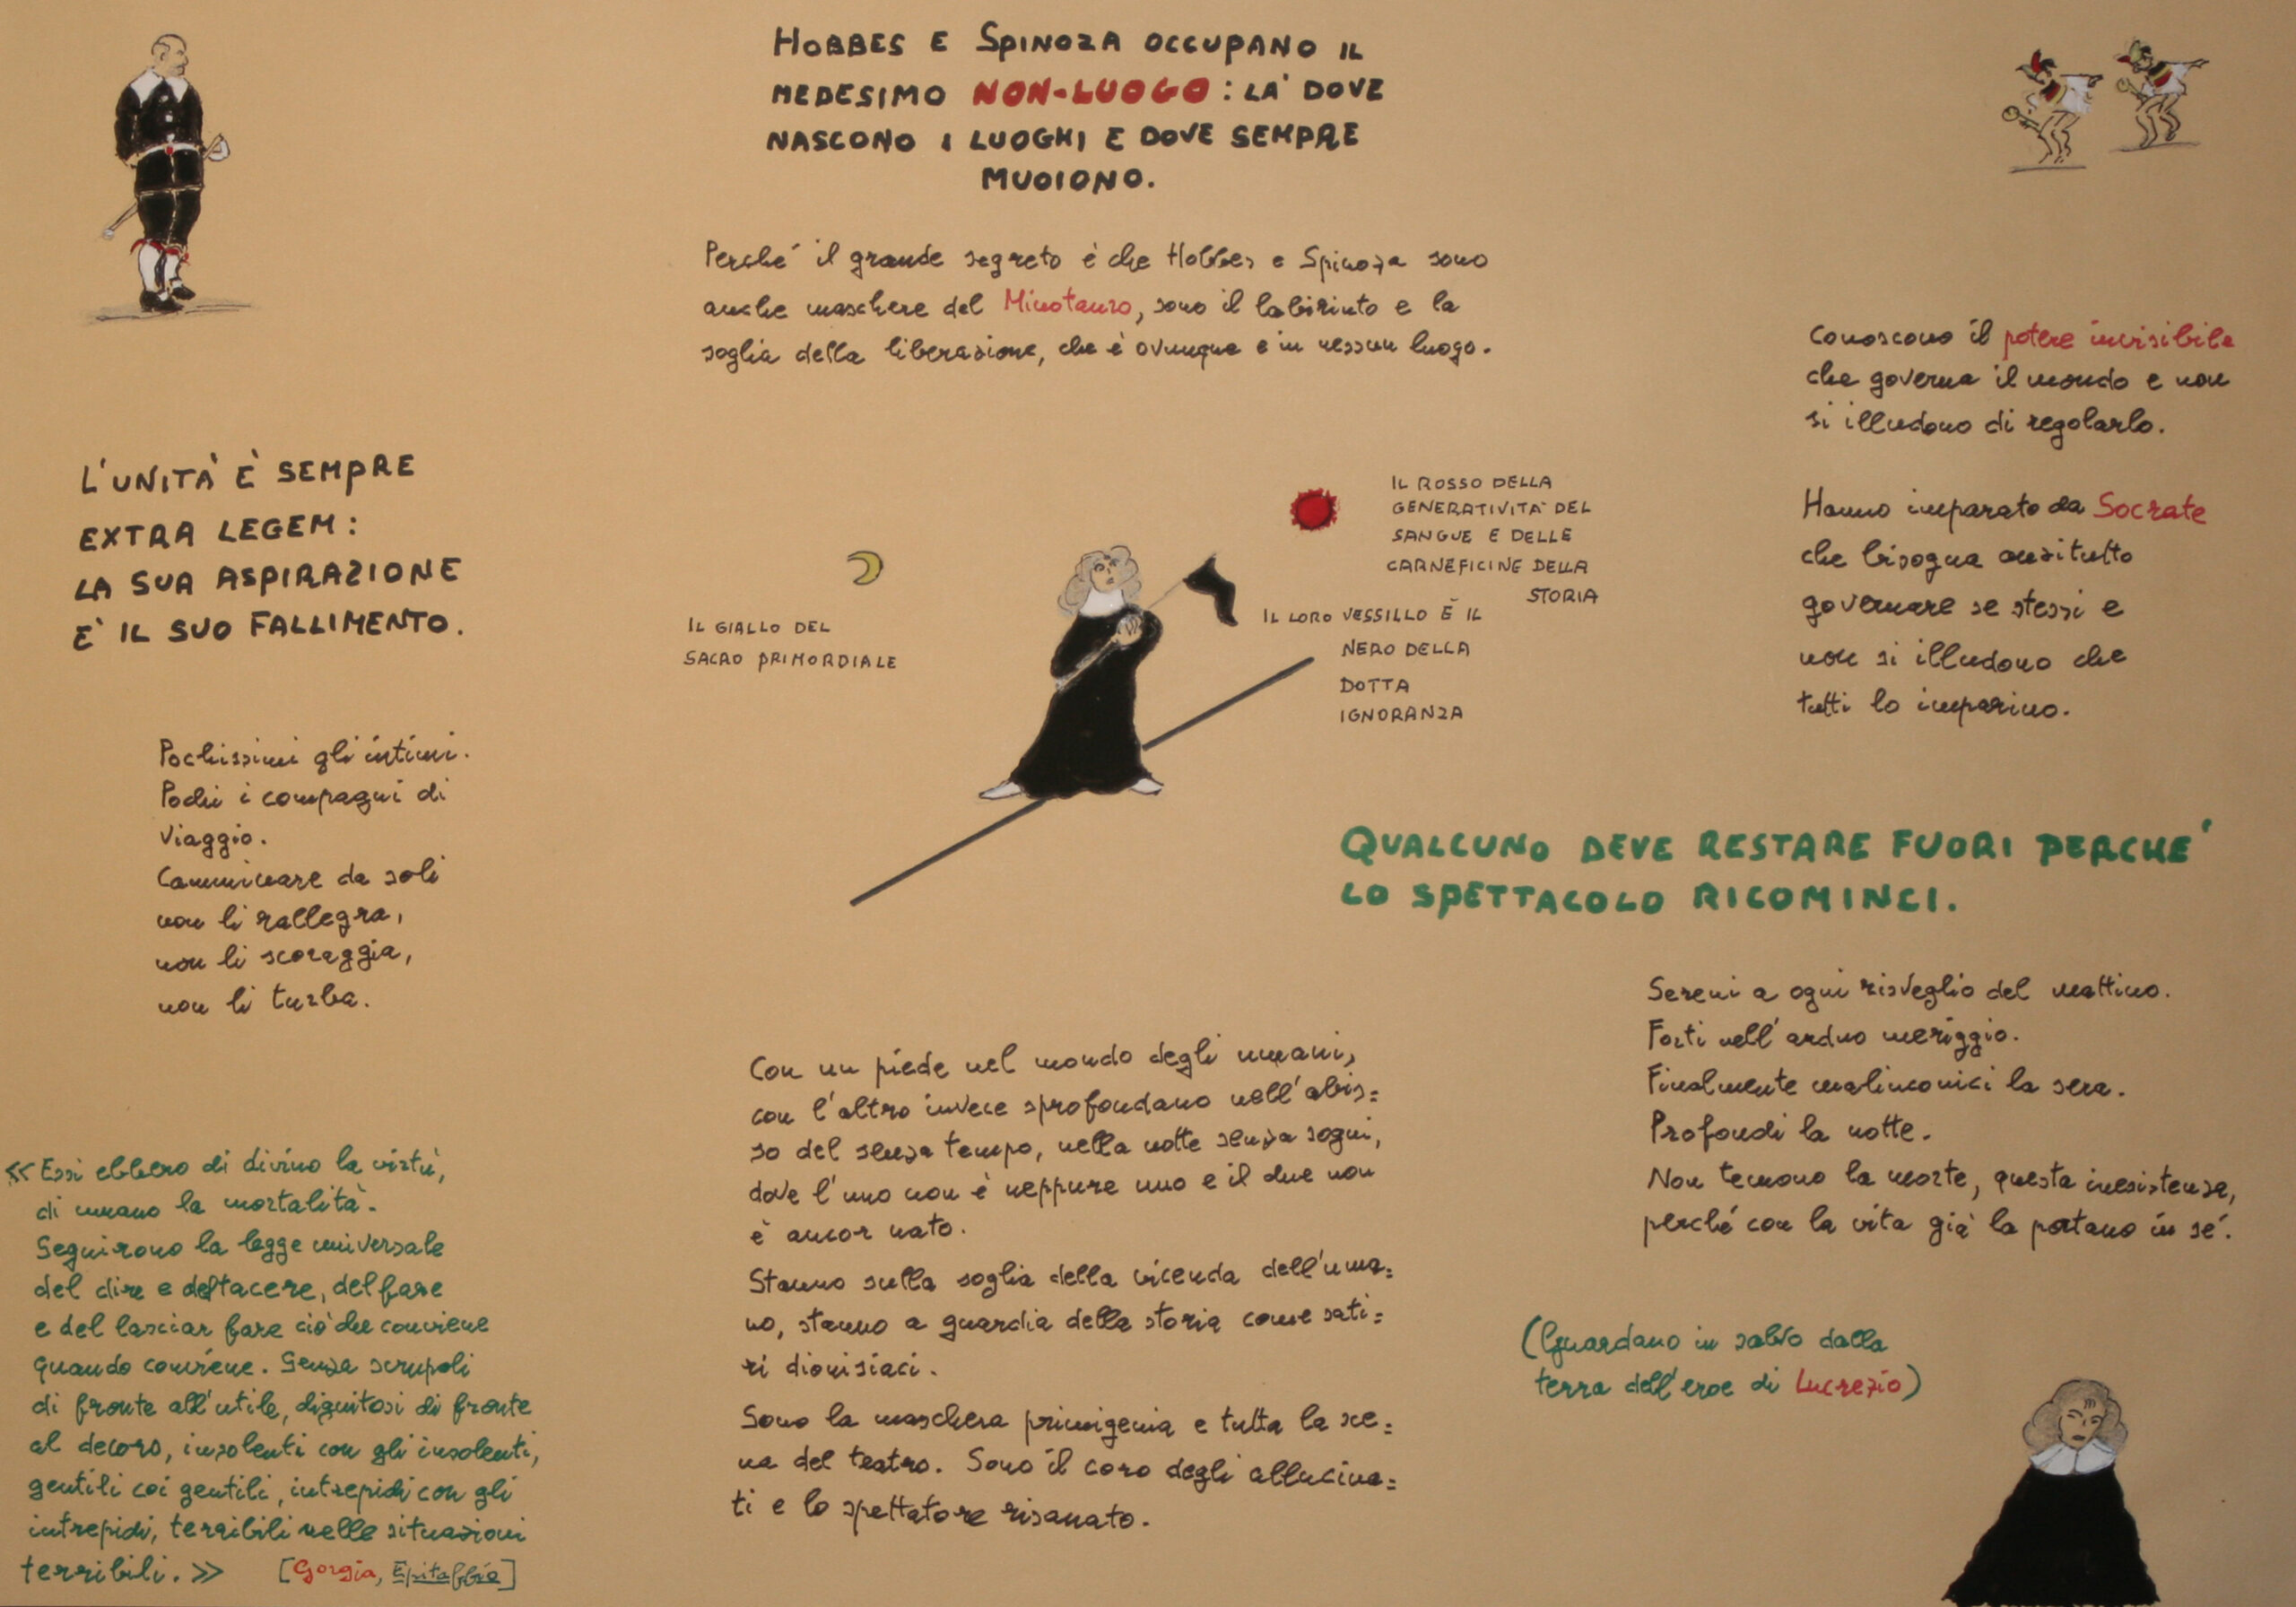 HOBBES E SPINOZA OCCUPANO IL
MEDESIMO NON-LUOGO: LA' DOVE
NASCONO I LUOGHI E DOVE SEMPRE
MUOIONO.
Perché il grande segreto è che Hobbes e Spinoza sono
anche maschere del Minotauro, sono il labirinto e la
soglia della liberazione, che è ovunque e in nessun luogo.
L'UNITÀ È SEMPRE
EXTRA LEGEM:
LA SUA ASPIRAZIONE
E' IL SUO FALLIMENTO.
Pochissimi gli intimi.
Pochi i compagni di
viaggio.
Camminare da soli
non li rallegra,
non li scoraggia,
non li turba.
«Essi ebbero di divino la virtù,
di umano la mortalità.
Seguirono la legge universale
del dire e del tacere, del fare
e del lasciar fare ciò che conviene
quando conviene. Senza scrupoli
di fronte all'utile, dignitosi di fronte
al decoro, insolenti con gli insolenti,
gentili coi gentili, intrepidi con gli
intrepidi, terribili nelle situazioni
terribili.» [Gorgia, Epitaffio]
IL GIALLO DEL
SACRO PRIMORDIALE
IL ROSSO DELLA
GENERATIVITÀ DEL
SANGUE E DELLE
CARNEFICINE DELLA
STORIA
IL LORO VESSILLO È IL
NERO DELLA
DOTTA
IGNORANZA
Con un piede nel mondo degli umani,
con l'altro invece sprofondano nell'abis=
so del senza tempo, nella notte senza sogni,
dove l'uno non è neppure uno e il due non
è ancor nato.
Stanno sulla soglia della vicenda dell'uma=
no, stanno a guardia della storia come sati=
ri dionisiaci.
Sono la maschera primigenia e tutta la sce=
na del teatro. Sono il coro degli allucina=
ti e lo spettatore risanato.
Conoscono il potere invisibile
che governa il mondo e non
si illudono di regolarlo.
Hanno imparato da Socrate
che bisogna anzitutto
governare se stessi e
non si illudono che
tutti lo imparino.
QUALCUNO DEVE RESTARE FUORI PERCHE'
LO SPETTACOLO RICOMINCI.
Sereni a ogni risveglio del mattino.
Forti nell'arduo meriggio.
Finalmente malinconici la sera.
Profondi la notte.
Non temono la morte, questa inesistenza,
perché con la vita già la portano in sé.
(Guardano in salvo dalla
terra dell'eroe di Lucrezio)